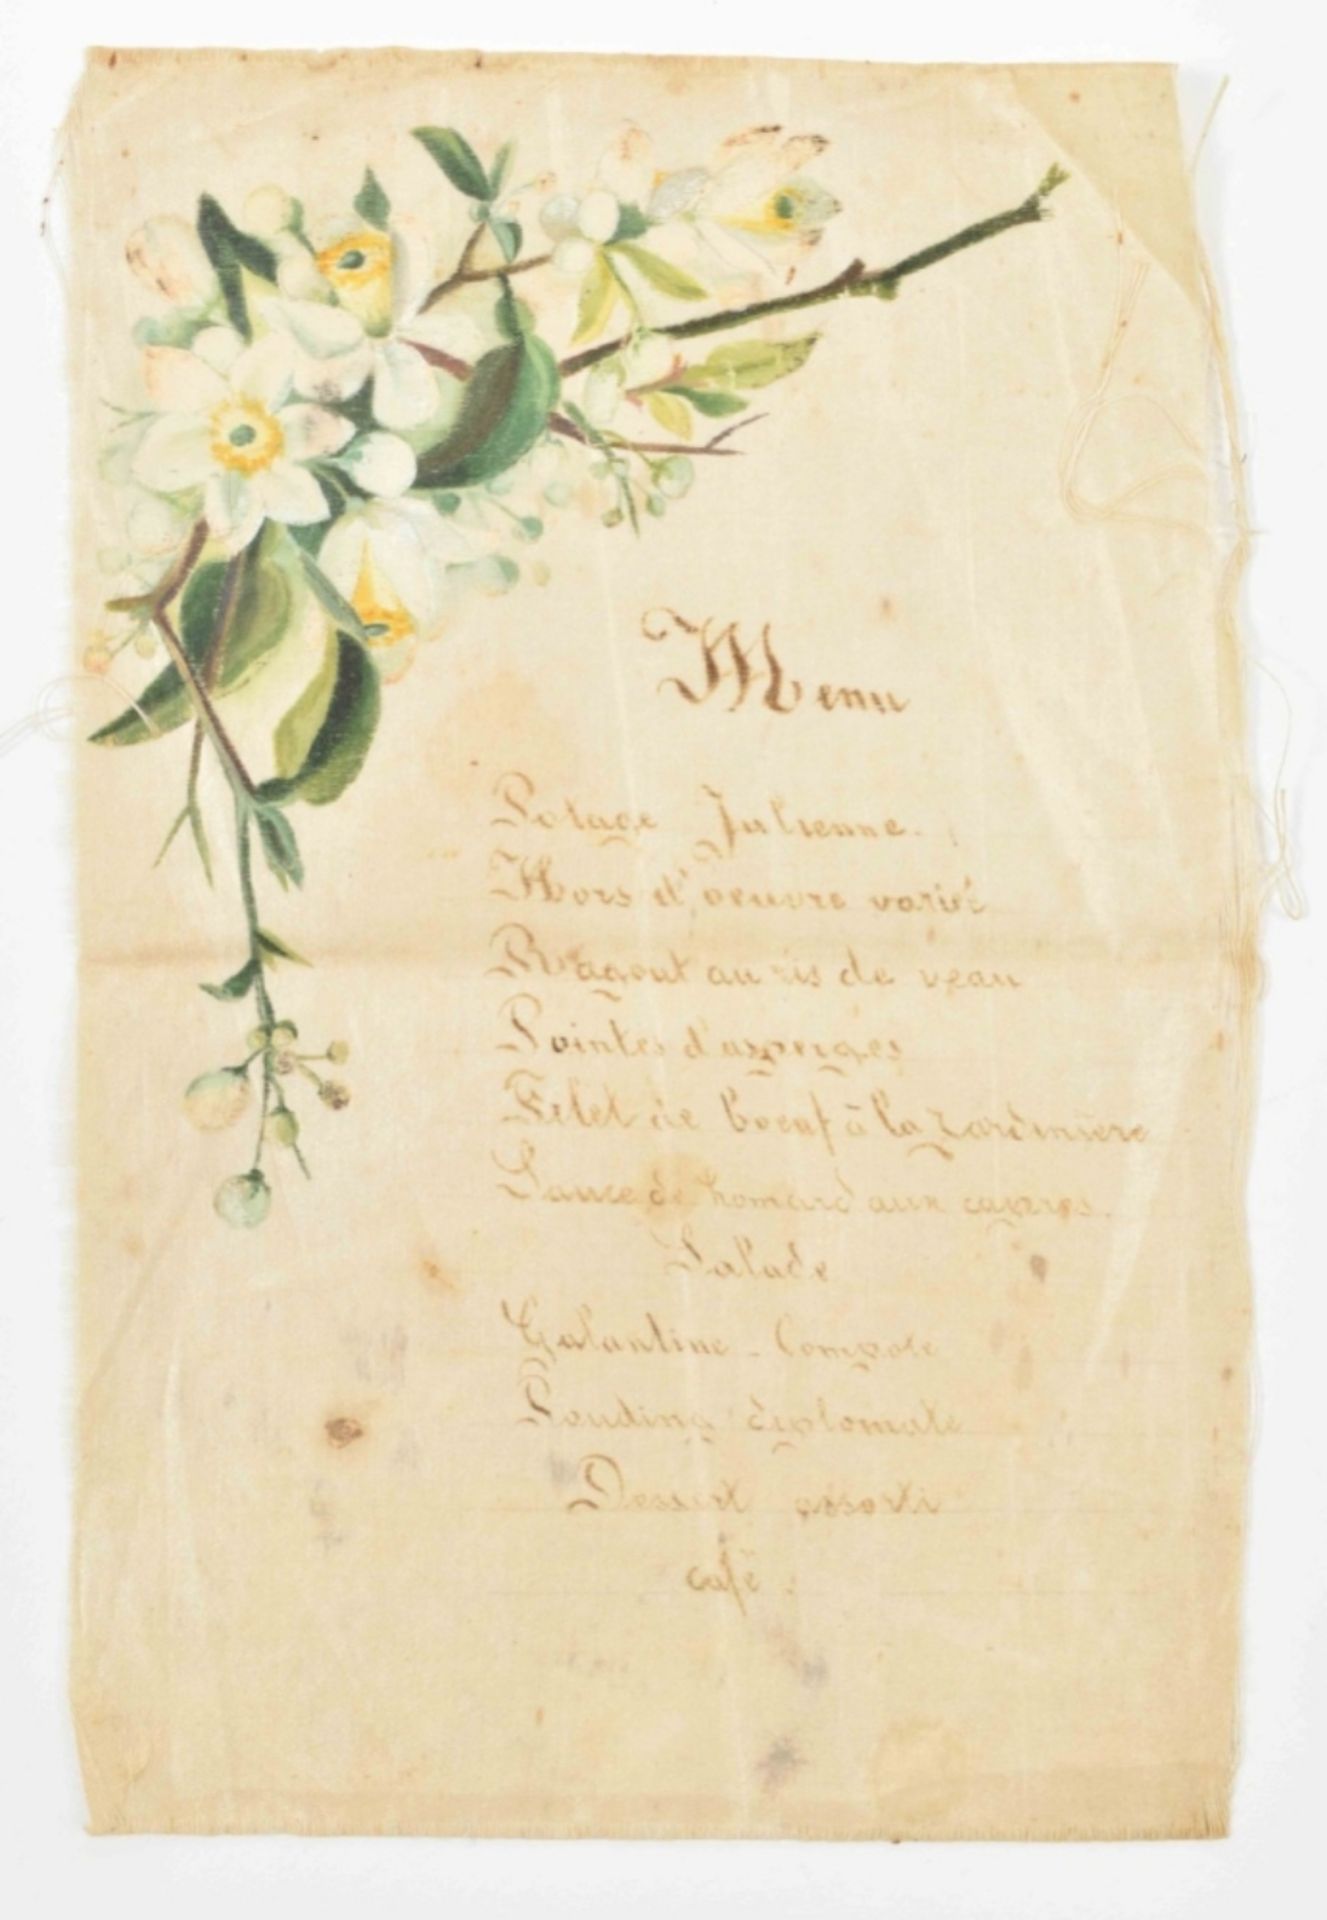 Menu
Potage Julienne.
Hors d'oeuvre varié
Ragout au ris de veau
Pointes d'asperges
Filet de boeuf à la Jardinière
Sauce de homard aux capres.
Salade
Galantine - Compote
Pouding diplomate
Dessert assorti
café.